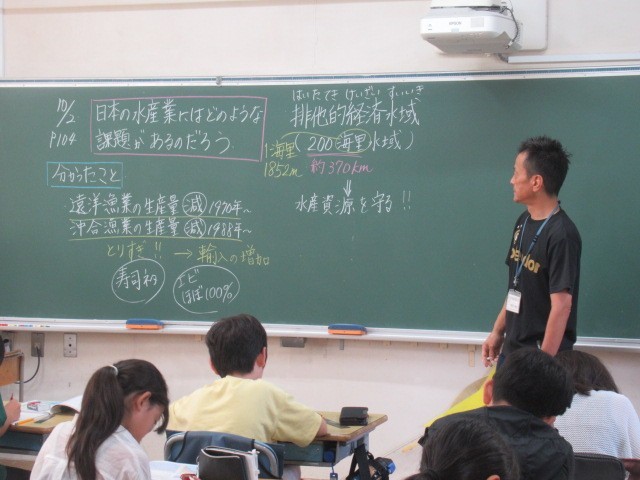 10/2
P104
日本の水産業にはどのような
課題があるのだろう
分かったこと
遠洋漁業の生産量 減 1970年~
沖合漁業の生産量 減 1988年~
とりすぎ!! → 輸入の増加
寿司ネタ
エビ
ほぼ100%
はいたてき けいざい すいいき
排他的経済水域
(200海里水域)
1海里
1852m
約370km
水産資源を守る!!
EPSON